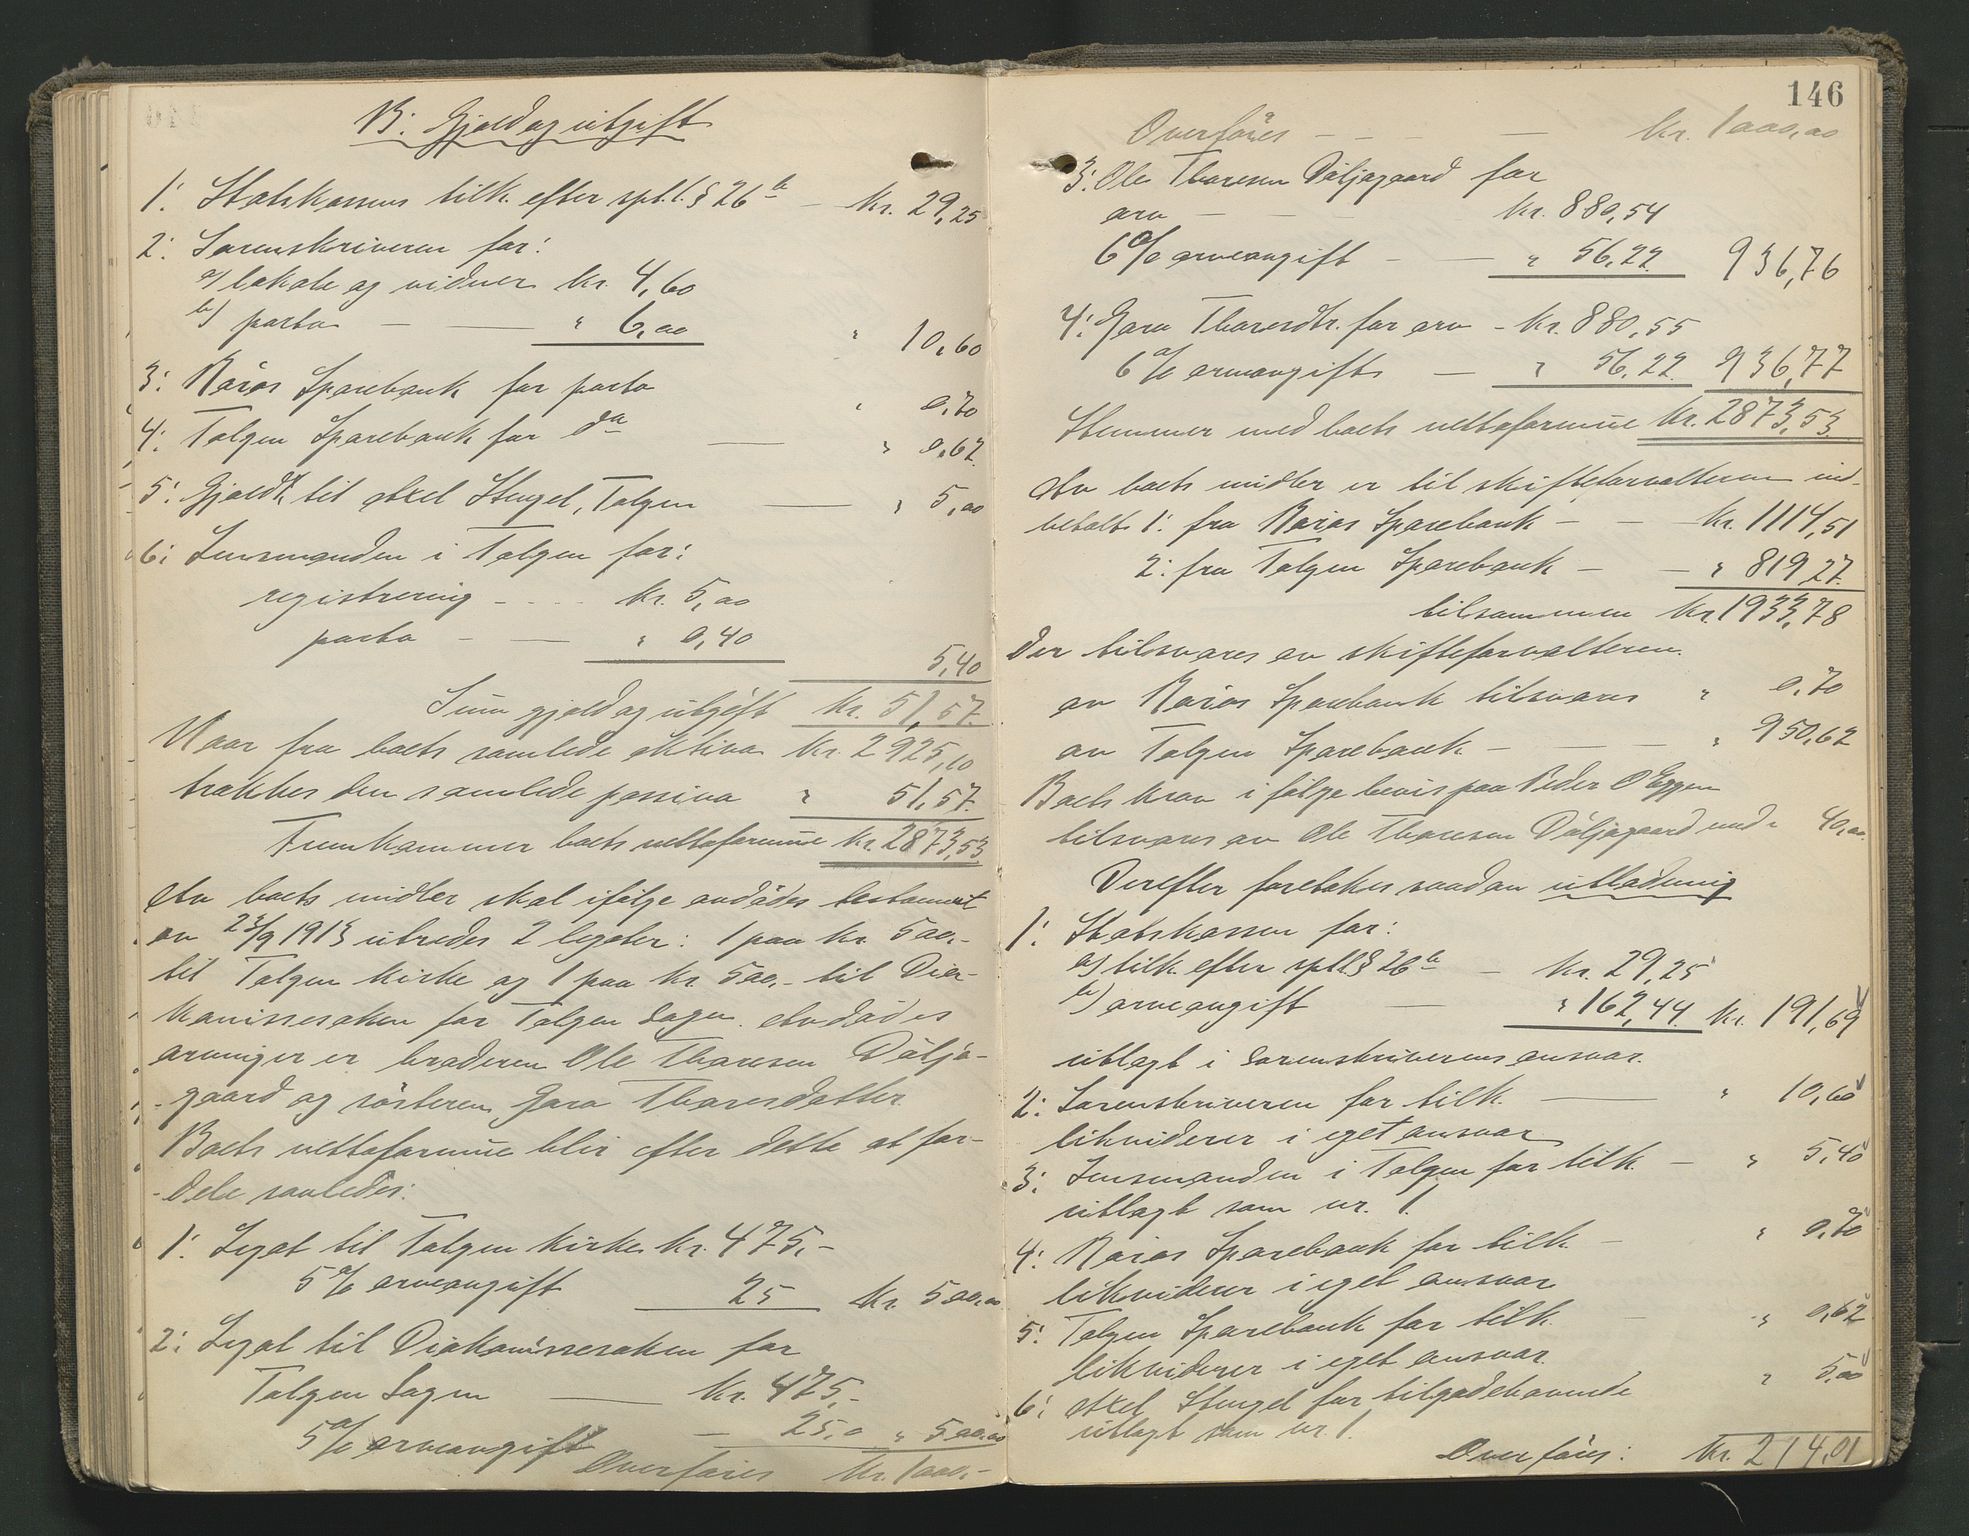 B: Gjeld og utgift
1: Statskassens tilk. efter spl.l. § 26 b — kr. 29,25
2: Sorenskriveren for:
a) lokale og vidner kr. 4,60
b) porto — — " 6,00 " 10,60
3: Røros Sparebank for porto " 0,70
4: Tolgen Sparebank for do — " 0,62
5: Gjeld til Axel Stengel, Tolgen — " 5,00
6: Lensmanden i Tolgen for:
registrering - - - - kr. 5,00
porto - — " 0,40
5,40
Sum gjeld og utgift kr. 51,57
Naar fra boets samlede aktiva kr. 2925,10
trækkes den samlede passiva " 51,57
Fremkommer boets nettoformue kr. 2873,53
Av boets midler skal ifølge avdødes testament
av 23/9 1913 utredes 2 legater: 1 paa kr 500,-
til Tolgen kirke og 1 paa kr 500,- til Dia-
konissesaken for Tolgen sogn. Avdødes
arvinger er broderen Ole Thoresen Døljø-
gaard og søsteren Goro Thoresdatter.
Boets nettoformue blir efter dette at for-
dele saaledes:
1: Legat til Tolgen kirke kr. 475,-
5 % arveavgift 25 kr. 500,00
2: Legat til Diakonissesaken for
Tolgen Sogn — kr. 475,-
5 % arveavgift — 25,0 " 500,00
Overføres kr. 1000,-
146
Overføres - - - — kr. 1000,00
3: Ole Thoresen Døljøgaard for
arv - - - kr. 880,54
6 % arveavgift - — " 56,22 936,76
4: Goro Thoresdtr. for arv - kr. 880,55
6 % arveavgift — " 56,22 936,77
Stemmer med boets nettoformue kr. 2873,53
Av boets midler er til skifteforvalteren ind-
betalt 1: fra Røros Sparebank - - kr. 1114,51
2: fra Tolgen Sparebank - - " 819,27
tilsammen kr. 1933,78
der tilsvares av skifteforvalteren.
av Røros Sparebank tilsvares " 0,70
av Tolgen Sparebank - — — " 950,62
Boets krav i følge bevis paa Peder O Eggen
tilsvares av Ole Thoresen Døljøgaard med " 40,00
Derefter foretakes saadan utlodning
1: Statskassen for:
a) tilk. efter spl.l. § 26 b — kr. 29,25
b) arveavgift — " 162,44 kr. 191,69
utlagt i sorenskriverens ansvar.
2: Sorenskriveren for tilk. — " 10,60
likviderer i eget ansvar
3: Lensmanden i Tolgen for tilk. - " 5,40
utlagt som nr. 1.
4: Røros Sparebank for tilk. - " 0,70
likviderer i eget ansvar
5: Tolgen Sparebank for tilk. - " 0,62
likviderer i eget ansvar.
6: Axel Stengel for tilgodehavende " 5,00
utlagt som nr. 1.
Overføres: kr. 214,01